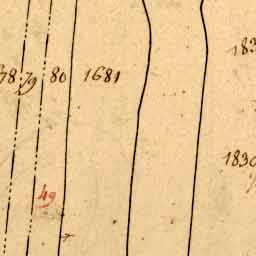 183
78.79 80 1681
1830
49